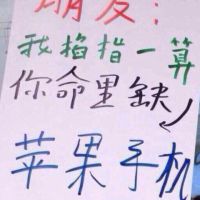 朋友：
我掐指一算
你命里缺
苹果手机